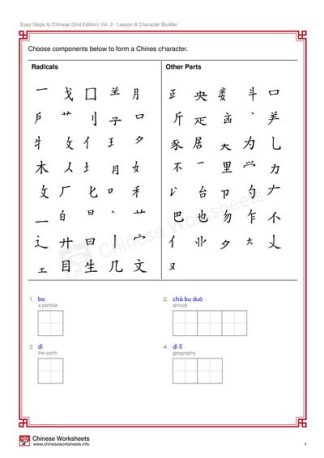 Easy Steps to Chinese (2nd Edition) Vol. 2 - Lesson 8 Character Builder
Choose components below to form a Chines character.
Radicals
Other Parts
一 戈 囗 月
户 艹 刂 子 口
牜 攵 亻 王 夕
木 人 月 女
攵 厂 匕 口
一 白 日 丶 艹
辶 廾 日 丨 宀
目 生 几 文
央 娄 斗 口
斤 疋 丶
家 居 为 乚
不 一 里 力
台 卫 勺
巴 也 勿 乍 不
亻 业
又
1. ba
a particle
2. chà bu duō
almost
3. dì
the earth
4. dì lǐ
geography
Chinese Worksheets
Chinese Worksheets
www.chineseworksheets.info
1